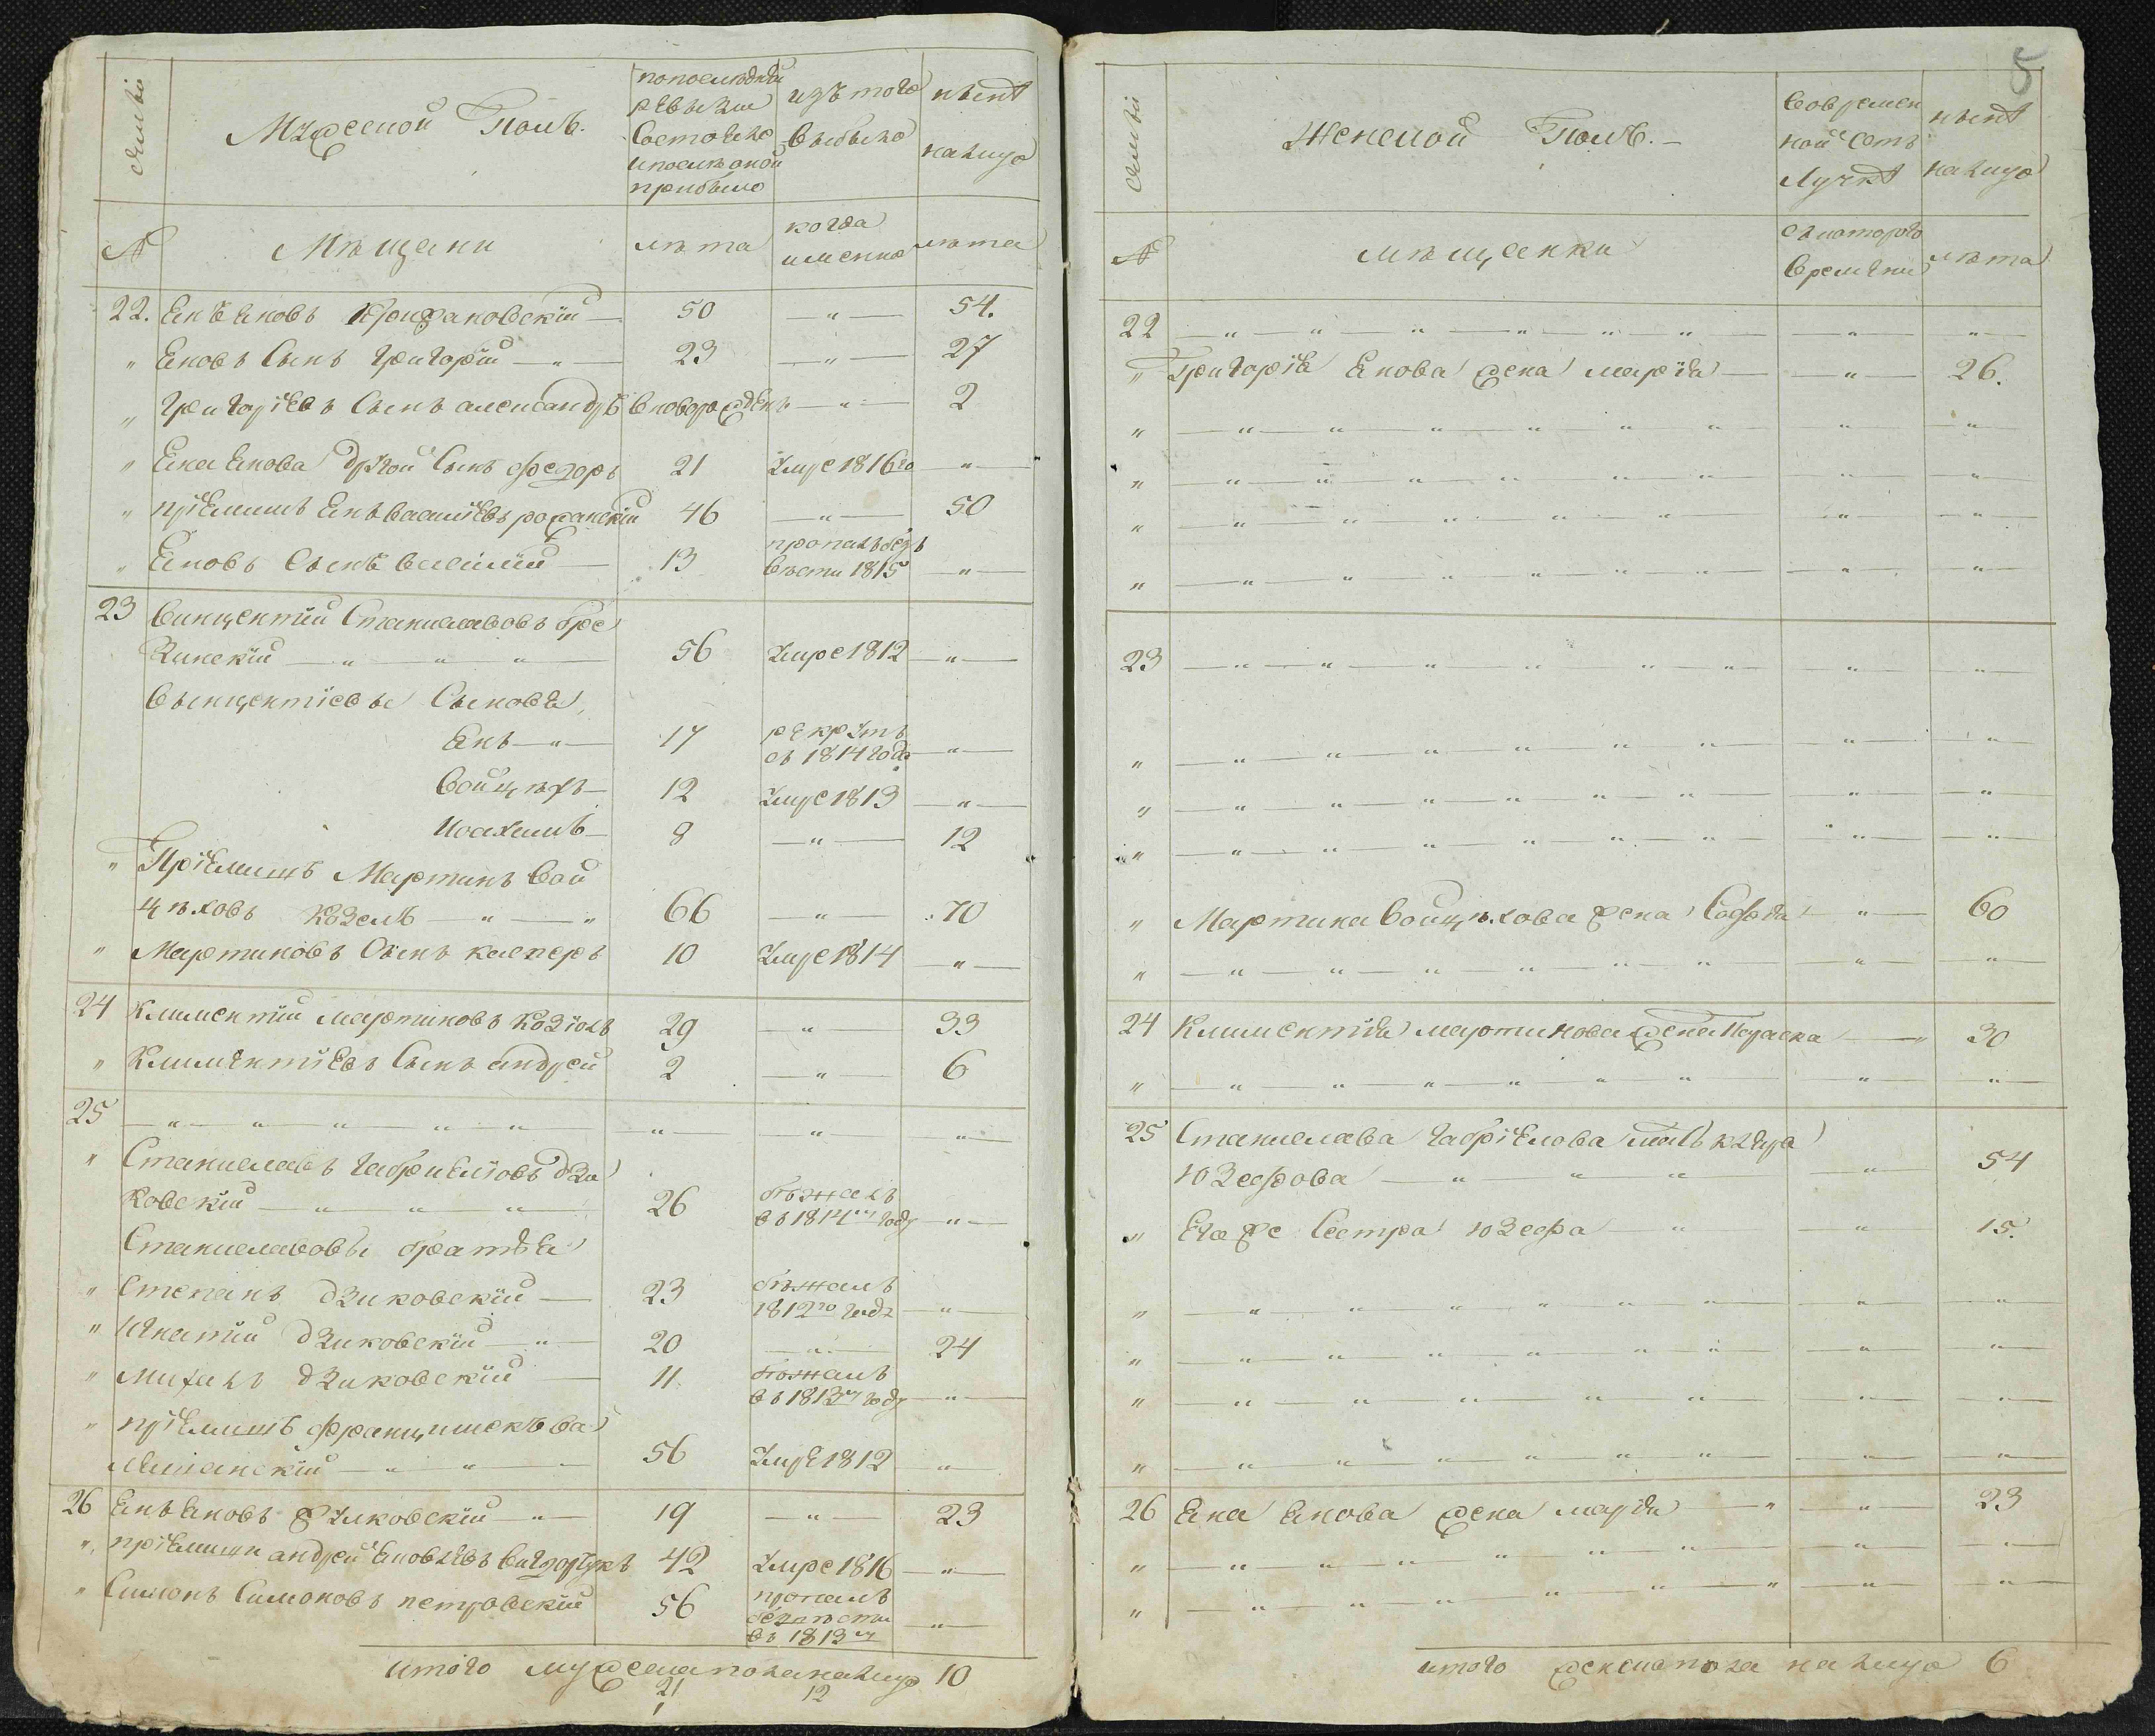 семьи
Мужеской Полъ.
попослѣдней
ревизіи
Состояло
ипослѣ оной
прибыло
изъ того
Выбыло
нынѣ
налицо
№
Мѣщани
лѣта
когда
именно
лѣта
22. Янъ Яновъ 50 — „ — 54.
„ Яновъ Сынъ Григорій — „ — 23 — „ — 27
„ Григоріевъ Сынъ александръ Вноворожденъ — „ — 2
„ Яна Янова другой Сынъ Федоръ 21 Умре 1816го — „ —
„ пріемышъ Янъ васильевъ рожанскій 46 — „ — 50
„ Яновъ Сынъ василій — 13 пропалъ безъ
вѣсти 1815 — „ —
23 Винцентій Станиславовъ бре
зинскій — „ — „ — „ — 56 Умре 1812 — „ —
Вынцентіевы Сыновья,
Янъ — „ — 17 рекрутъ
съ 1814 года — „ —
Войцѣхъ — 12 Умре 1813 — „ —
Иоахимъ — 8 — „ — 12
„ Пріемышъ Мартинъ Вой
цѣховъ Козелъ — „ — „ 66 — „ — 70
„ Мартиновъ Сынъ касперъ 10 Умре 1814 — „ —
24 Климентій мартиновъ Козіолъ 29 — „ — 33
„ Климентіевъ Сынъ андрей 2 — „ — 6
25 — „ — „ — „ — „ — „ — „ — „ — „ —
„ Станиславъ габриеліовъ дзи
ковскій — „ — „ — „ — 26 бѣжалъ
въ 1814м году — „ —
Станиславовы братья
„ Степанъ дзиковскій — 23 бѣжалъ
1812го года — „ —
„ Игнатій дзиковскій — „ — 20 — „ — 24
„ Михалъ дзиковскій — 11 бѣжалъ
въ 1813м году — „ —
„ пріемышъ францишекъ ва
56 Умре 1812 „
26 Янъ Яновъ жулковскій — „ — 19 — „ — 23
„ пріемыши андрей Яковлевъ 42 Умре 1816 — „ —
„ Симонъ Симоновъ петровскій 56 пропалъ
безвѣсти
въ 1813м — „ —
итого мужескаполаналицо 10
21 12
1
5
семьи
Женской Полъ. —
Вовремен
ной отъ
лучкѣ
нынѣ
налицо
№
мѣщанки
съкоторого
времени
лѣта
22 — „ — „ — „ — „ — „ — „ — „ — „ —
„ Григорія Янова жена марія — — „ — 26.
„ — „ — „ — „ — „ — „ — „ — „ — „ —
„ — „ — „ — „ — „ — „ — „ — „ — „ —
„ — „ — „ — „ — „ — „ — „ — „ —
„ — „ — „ — „ — „ — „ — „ — „ — „ —
23 — „ — „ — „ — „ — „ — „ — „ — „ —
„ — „ — „ — „ — „ — „ — „ — „ — „ —
„ — „ — „ — „ — „ — „ — „ — „ — „ —
„ — „ — „ — „ — „ — „ — „ — „ — „ —
„ Мартина Войцѣхова жена Софія — „ — 60
„ — „ — „ — „ — „ — „ — „ — „ — „ —
24 Климентія мартинова жена Параска — „ 30
„ — „ — „ — „ — „ — „ — „ — „ — „ —
25 Станислава габріелова мать
юзефова — „ — „ — „ — „ — 54
„ Егоже Сестра юзефа — „ — „ — 15.
„ — „ — „ — „ — „ — „ — „ — „ — „ —
„ — „ — „ — „ — „ — „ — „ — „ — „ —
„ — „ — „ — „ — „ — „ — „ — „ — „ —
„ — „ — „ — „ — „ — „ — „ — „ — „ —
26 Яна Янова жена марія — „ — „ — 23
„ — „ — „ — „ — „ — „ — „ — „ — „ —
„ — „ — „ — „ — „ — „ — „ — „ — „ —
итого женскапола налицо 6